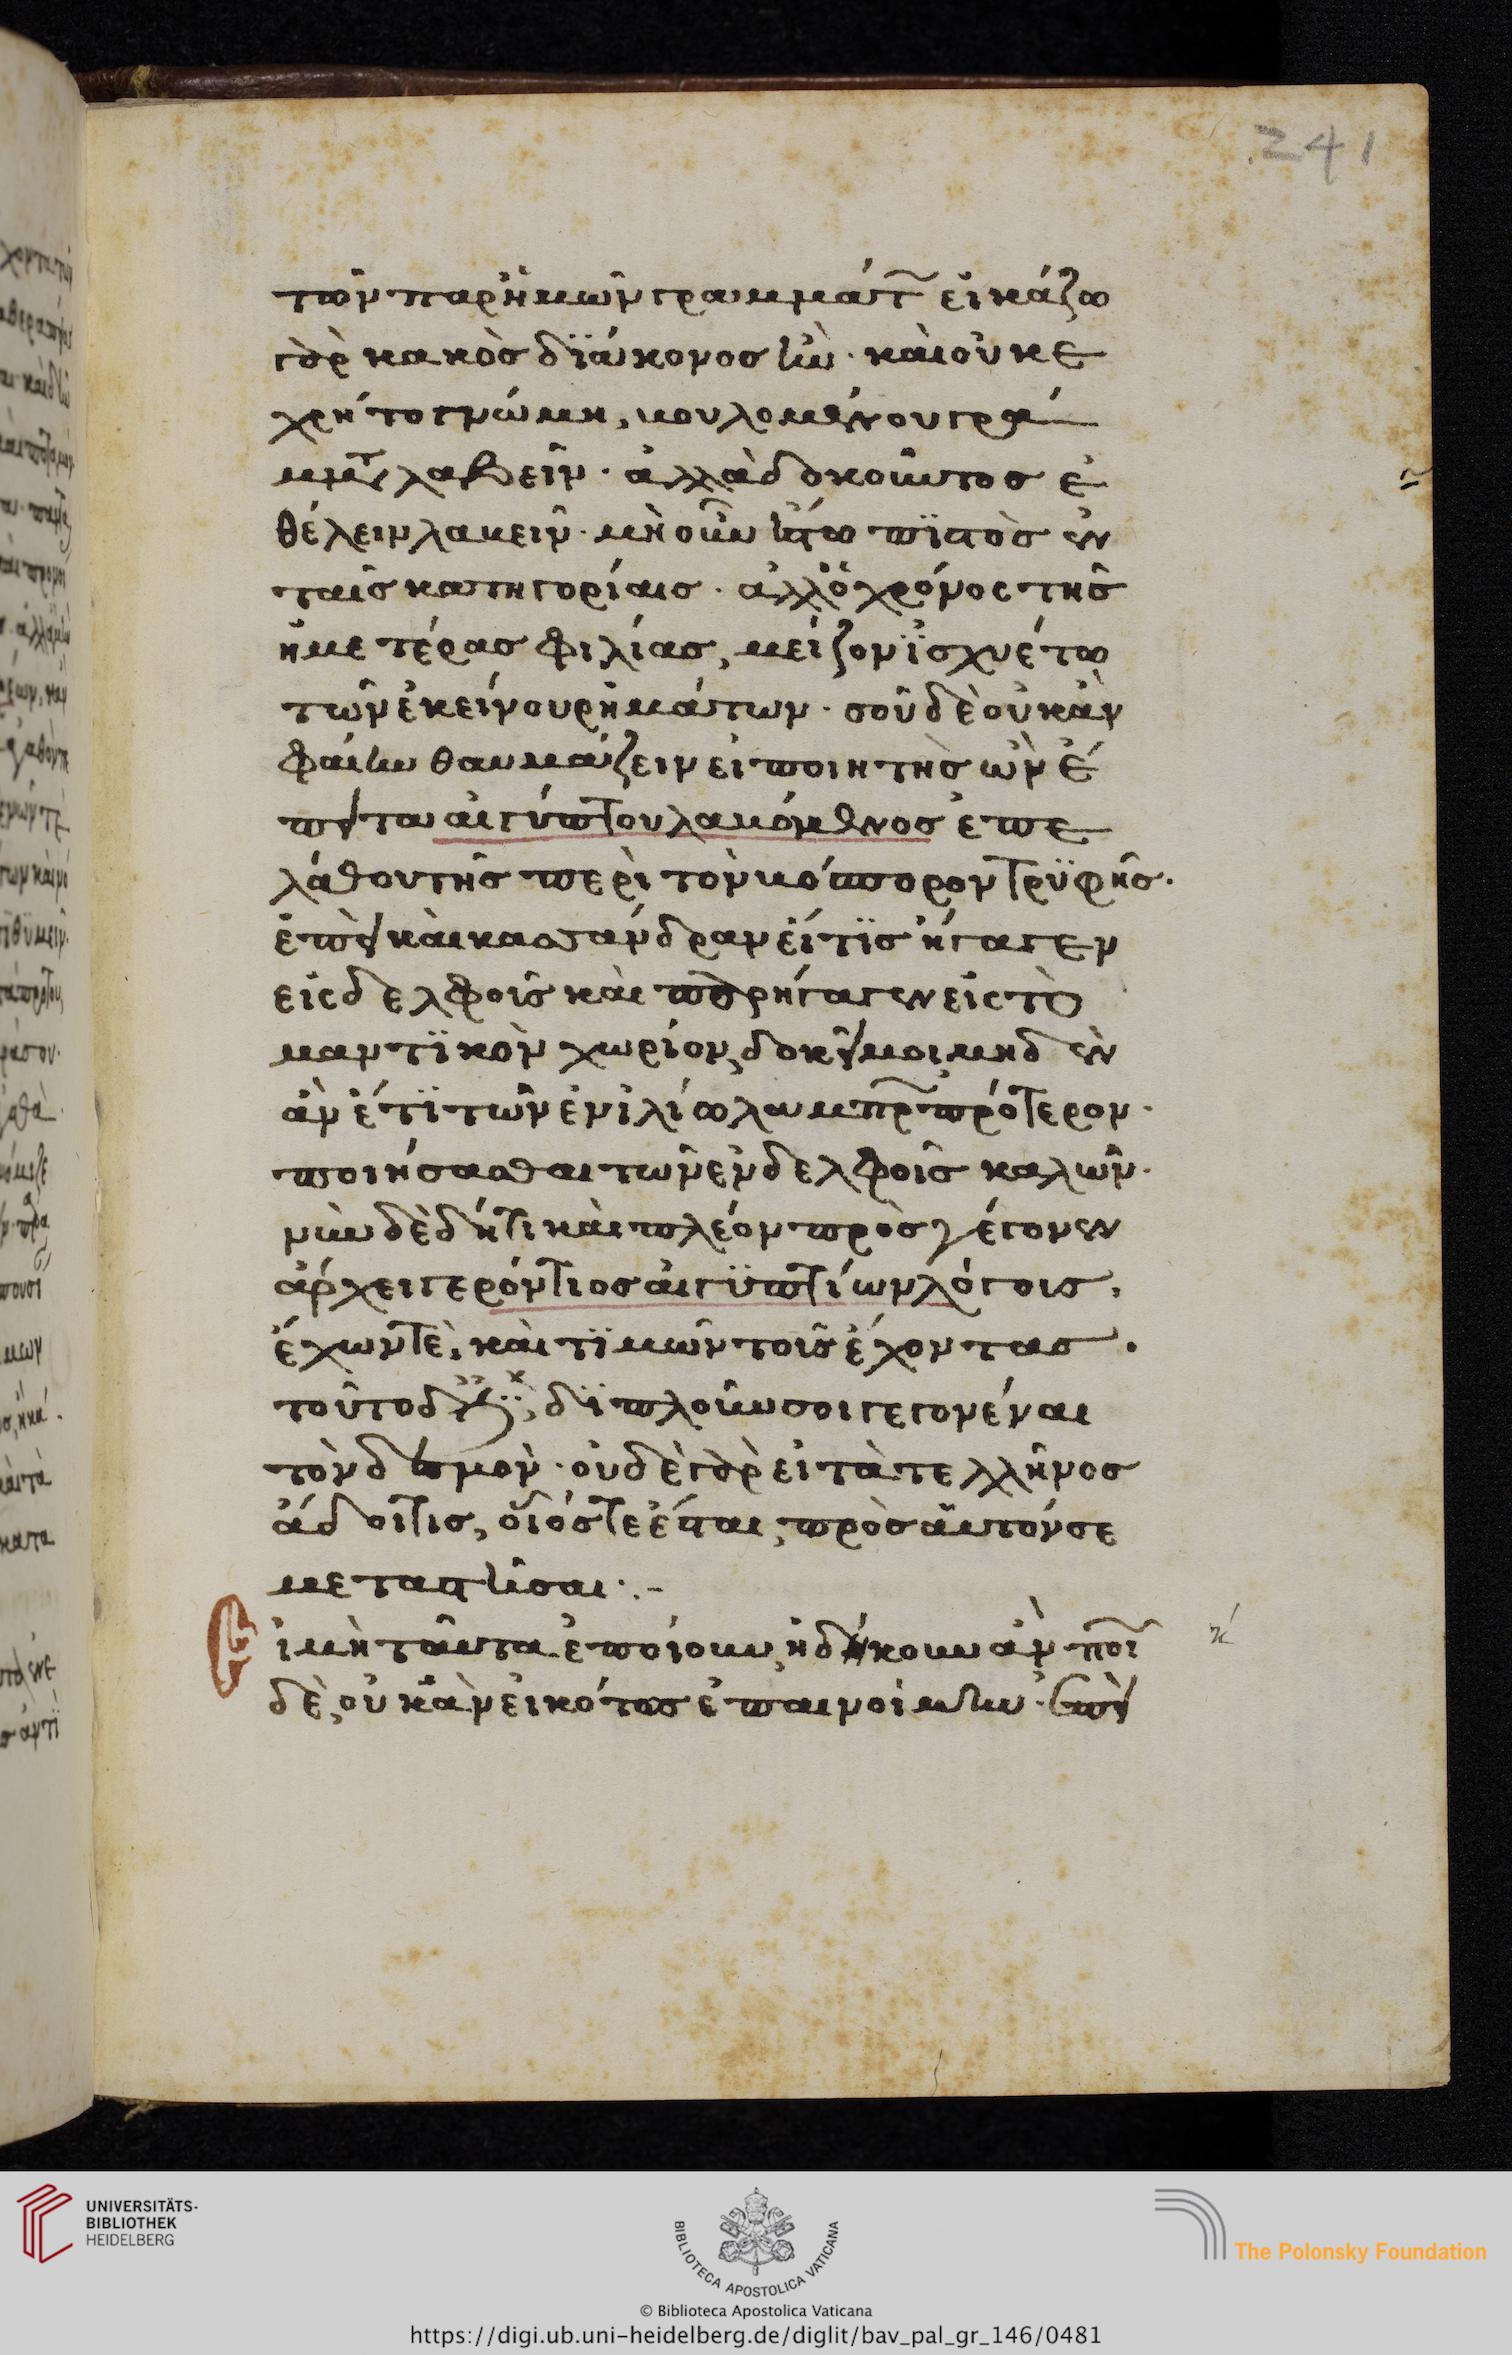 241
τῶν παρ ἡμῶν γραμμάτ εἰκάζω
γὰρ κακὸς διάκονος ἦν · καὶ οὐκ ἐ
χρῆτο γνώμη, βουλομένου γρά
μματα λαβεῖν · ἀλλὰ δοκοῦντος ἐ
θέλειν λαβεῖν · μὴ οὖν ἔστω πιστὸς ἐν
ταῖς κατηγορίαις · ἀλλ ὁ χρόνος τῆς
ἡμετέρας φιλίας, μεῖζον ἰσχυέτω
τῶν ἐκείνου ῥημάτων · σοῦ δὲ οὐκ ἂν
φαίην θαυμάζειν εἰ ποιητὴς ὢν ἔ
πειτα αἰγύπτου λαβόμενος ἐπε
λάθου τῆς περὶ τὸν βόσπορον τρυφῆς.
ἐπεὶ καὶ κασσάνδραν εἴ τις ἤγαγεν
εἰς δελφοὺς καὶ παρήγαγεν εἰς τὸ
μαντικὸν χωρίον, δοκεῖ μοι μηδὲν
ἂν ἔτι τῶν ἐν ἰλίω λαμπρῶν πρότερον ·
ποιήσασθαι τῶν ἐν δελφοῖς καλῶν ·
νῦν δὲ δή τι καὶ πλέον πρὸς γέγονεν
ἄρχει γερόντιος αἰγυπτίων λόγοις,
ἔχων τὲ, καὶ τιμῶν τοὺς ἔχοντας .
διπλοῦν σοι γεγονέναι
τὸν δεσμόν · οὐδὲ γὰρ εἰ τὰ τελλῆνος
ἄδοι τις, οἷός τε ἔσται, πρὸς αὑτόν σε
μεταστῆσαι ·.-
Εἰ μὴ ταῦτα ἐποίουν, ἠδίκουν ἂν ποι
δὲ, οὐκ ἂν εἰκότως ἐπαινοίμην · ἐπεὶ
κ´
UNIVERSITÄTS-
BIBLIOTHEK
HEIDELBERG
BIBLIOTECA APOSTOLICA VATICANA
The Polonsky Foundation
© Biblioteca Apostolica Vaticana
https://digi.ub.uni-heidelberg.de/diglit/bav_pal_gr_146/0481